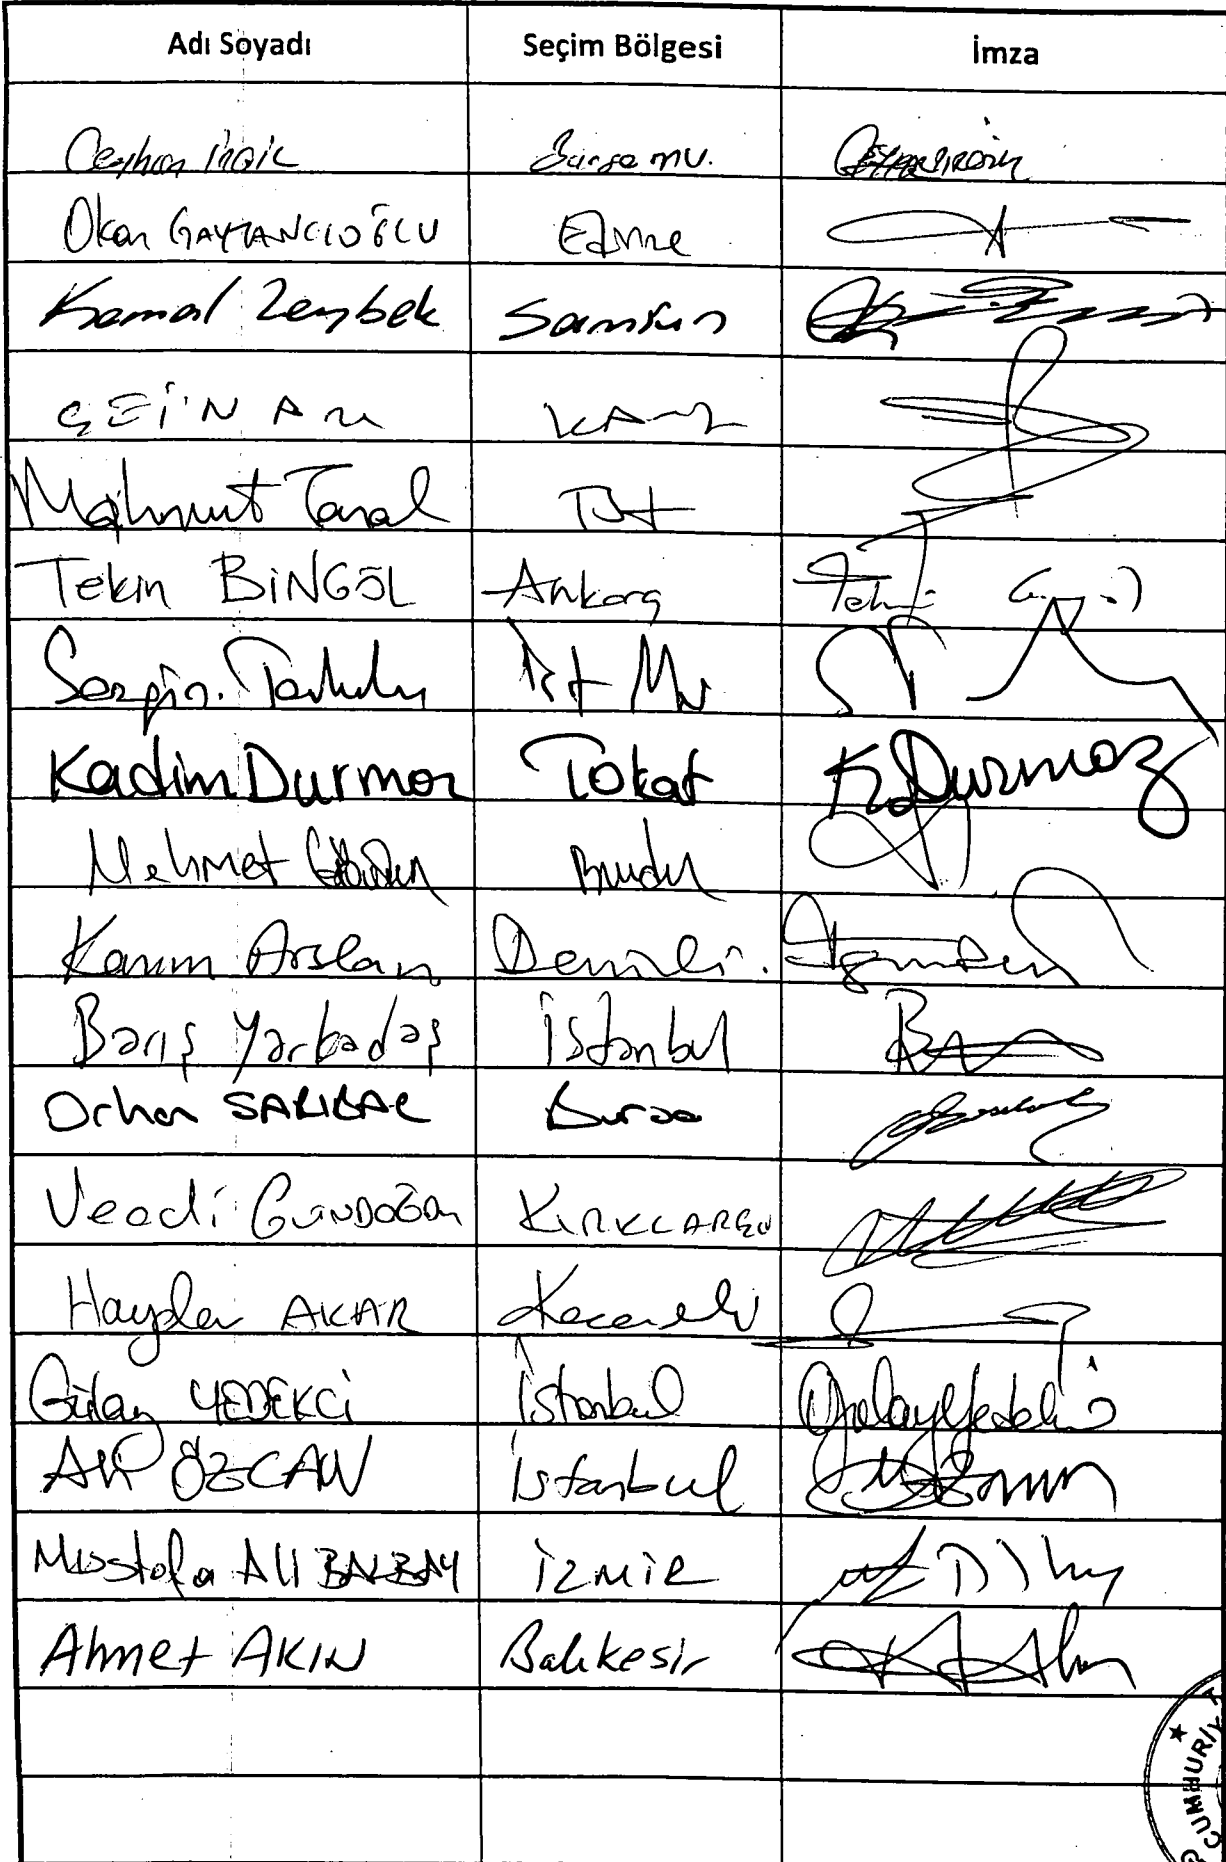 Adı Soyadı Seçim Bölgesi İmza
Ceyhun İrgil Bursa mv.
Okan GAYTANCIOĞLU Edirne
Kemal Zeybek Samsun
Mahmut Tanal İst
Tekin BİNGÖL Ankara
Sezgin Tanrıkulu İst Mv
Kadim Durmaz Tokat K. Durmaz
Mehmet Göker Burdur
Kazım Arslan Denizli.
Barış Yarkadaş İstanbul
Orhan SARIBAL Bursa
Vecdi GÜNDOĞDU KIRKLARELİ
Haydar AKAR Kocaeli
Gülay YEDEKCİ İstanbul Gülay Yedekci
Ali ÖZCAN İstanbul
Mustafa Ali BALBAY İZMİR
Ahmet AKIN Balıkesir
CUMHURİY